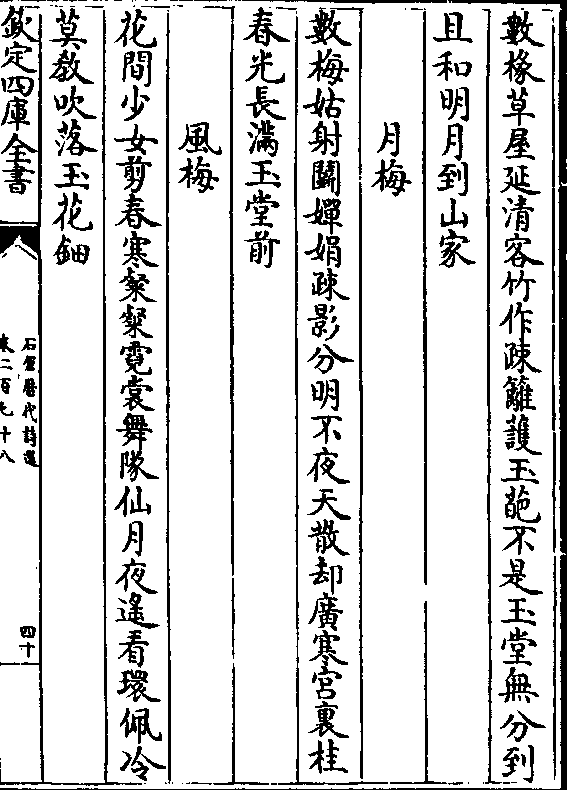 數椽草屋延清客竹作疎籬護玉葩不是玉堂無分到
且和明月到山家
月梅
數梅姑射鬭嬋娟疎影分明不夜天散却廣寒宫裏桂
春光長滿玉堂前
風梅
花間少女剪春寒粲粲霓裳舞隊仙月夜遙看環佩冷
莫敎吹落玉花鈿
欽定四庫全書
石倉歷代詩選
卷二百九十八
四十